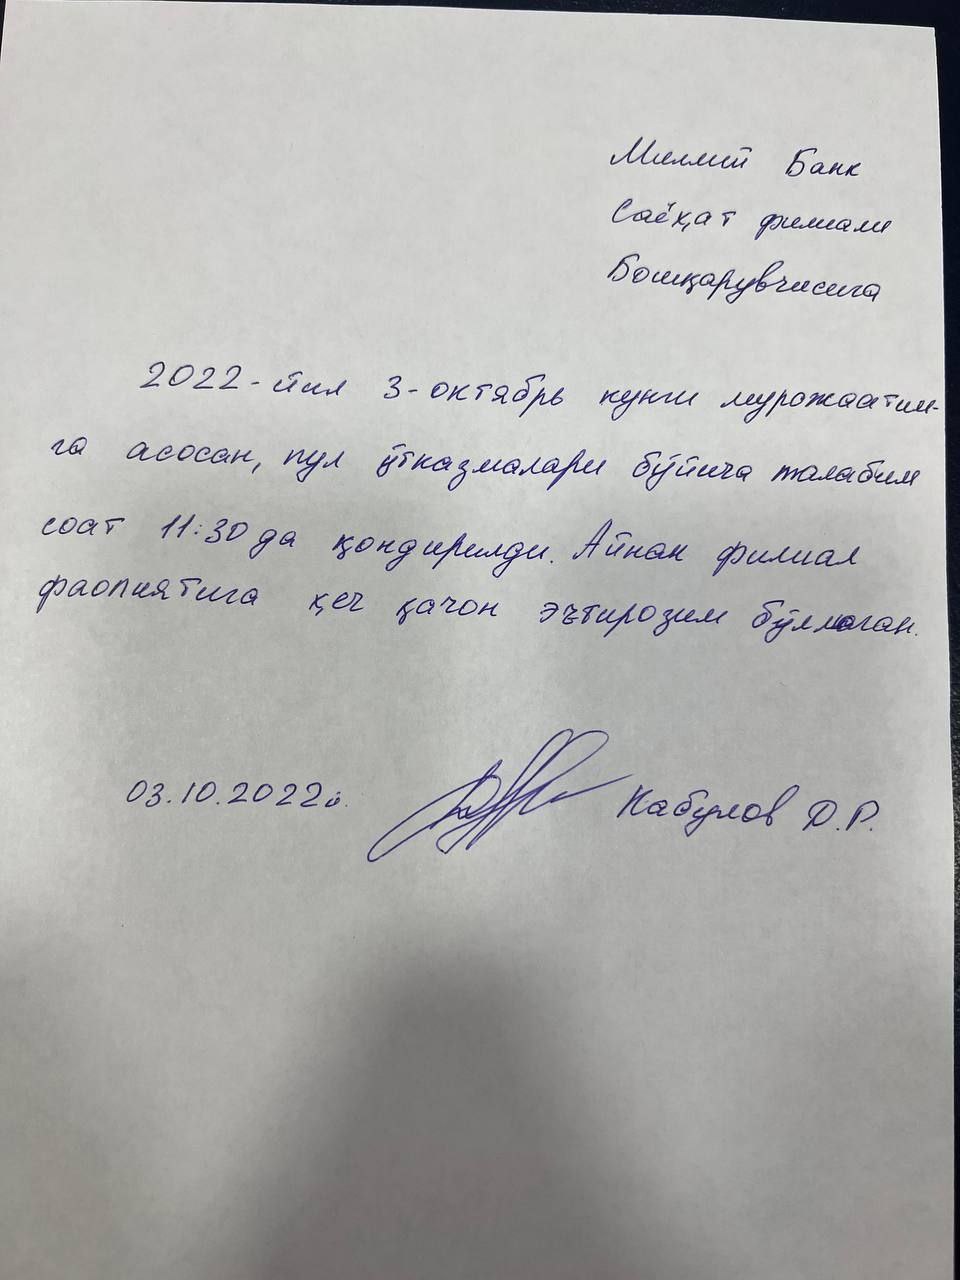 Миллий Банк
Саёҳат филиали
Бошқарувчисига
2022-йил 3-октябрь кунги мурожаатим-
га асосан, пул ўтказмалари бўйича талабим
соат 11:30 да қондирилди. Айнан филиал
фаолиятига ҳеч қачон эътирозим бўлмаган.
03.10.2022й. Кабулов Д.Р.